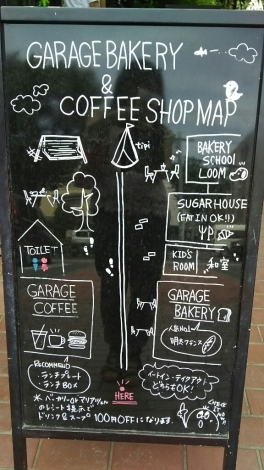 GARAGE BAKERY
&
COFFEE SHOP MAP
tipi
BAKERY
SCHOOL
LOOM
SUGARHOUSE
(EAT IN OK!!)
KID'S
ROOM
和室
TOILET
GARAGE
COFFEE
GARAGE
BAKERY
人気No.1
明太フランス
RECOMMEND
・ランチプレート
・ランチBOX
HERE
イートイン・テイクアウト
どちらもOK!
CHECK
IT
※ベーカリー or マリアージュ
のレシート提示で
ドリンク&スープ 100円OFFになります。